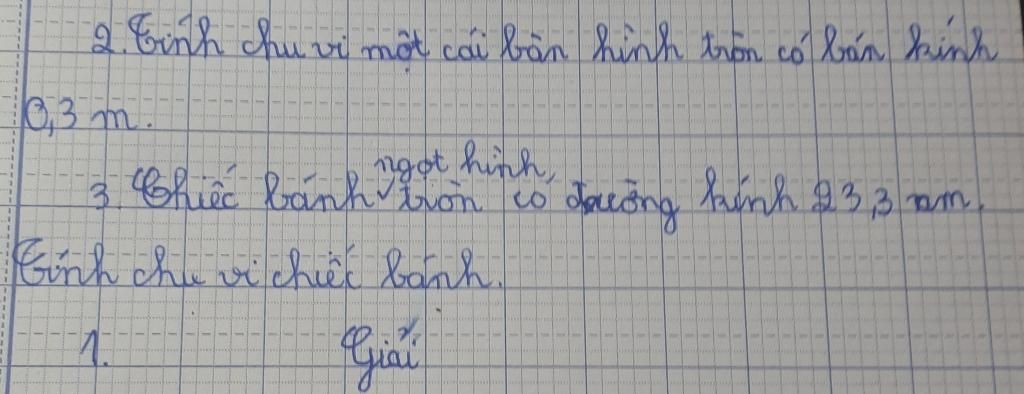 2. Tính chu vi một cái bàn hình tròn có bán kính
0,3 m.
ngọt hình
3. Chiếc bánh tròn có đường kính 23,3 mm.
Tính chu vi chiếc bánh.
1. Giải